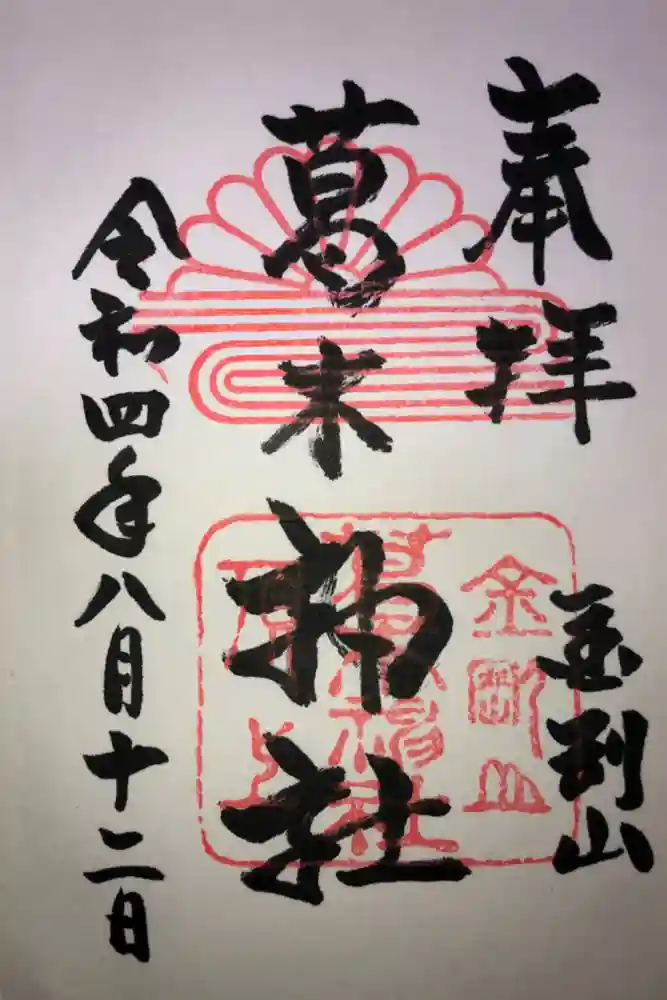 奉拝
金剛山
葛木神社
令和四年八月十二日
金剛山
葛木神社